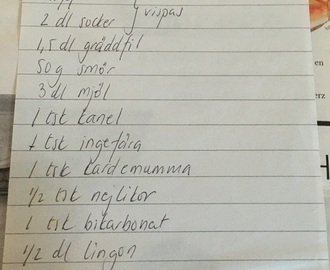 2 dl socker } vispas
1,5 dl gräddfil
50 g smör
3 dl mjöl
1 tsk kanel
1 tsk ingefära
1 tsk kardemumma
1/2 tsk nejlikor
1 tsk bikarbonat
1/2 dl lingon